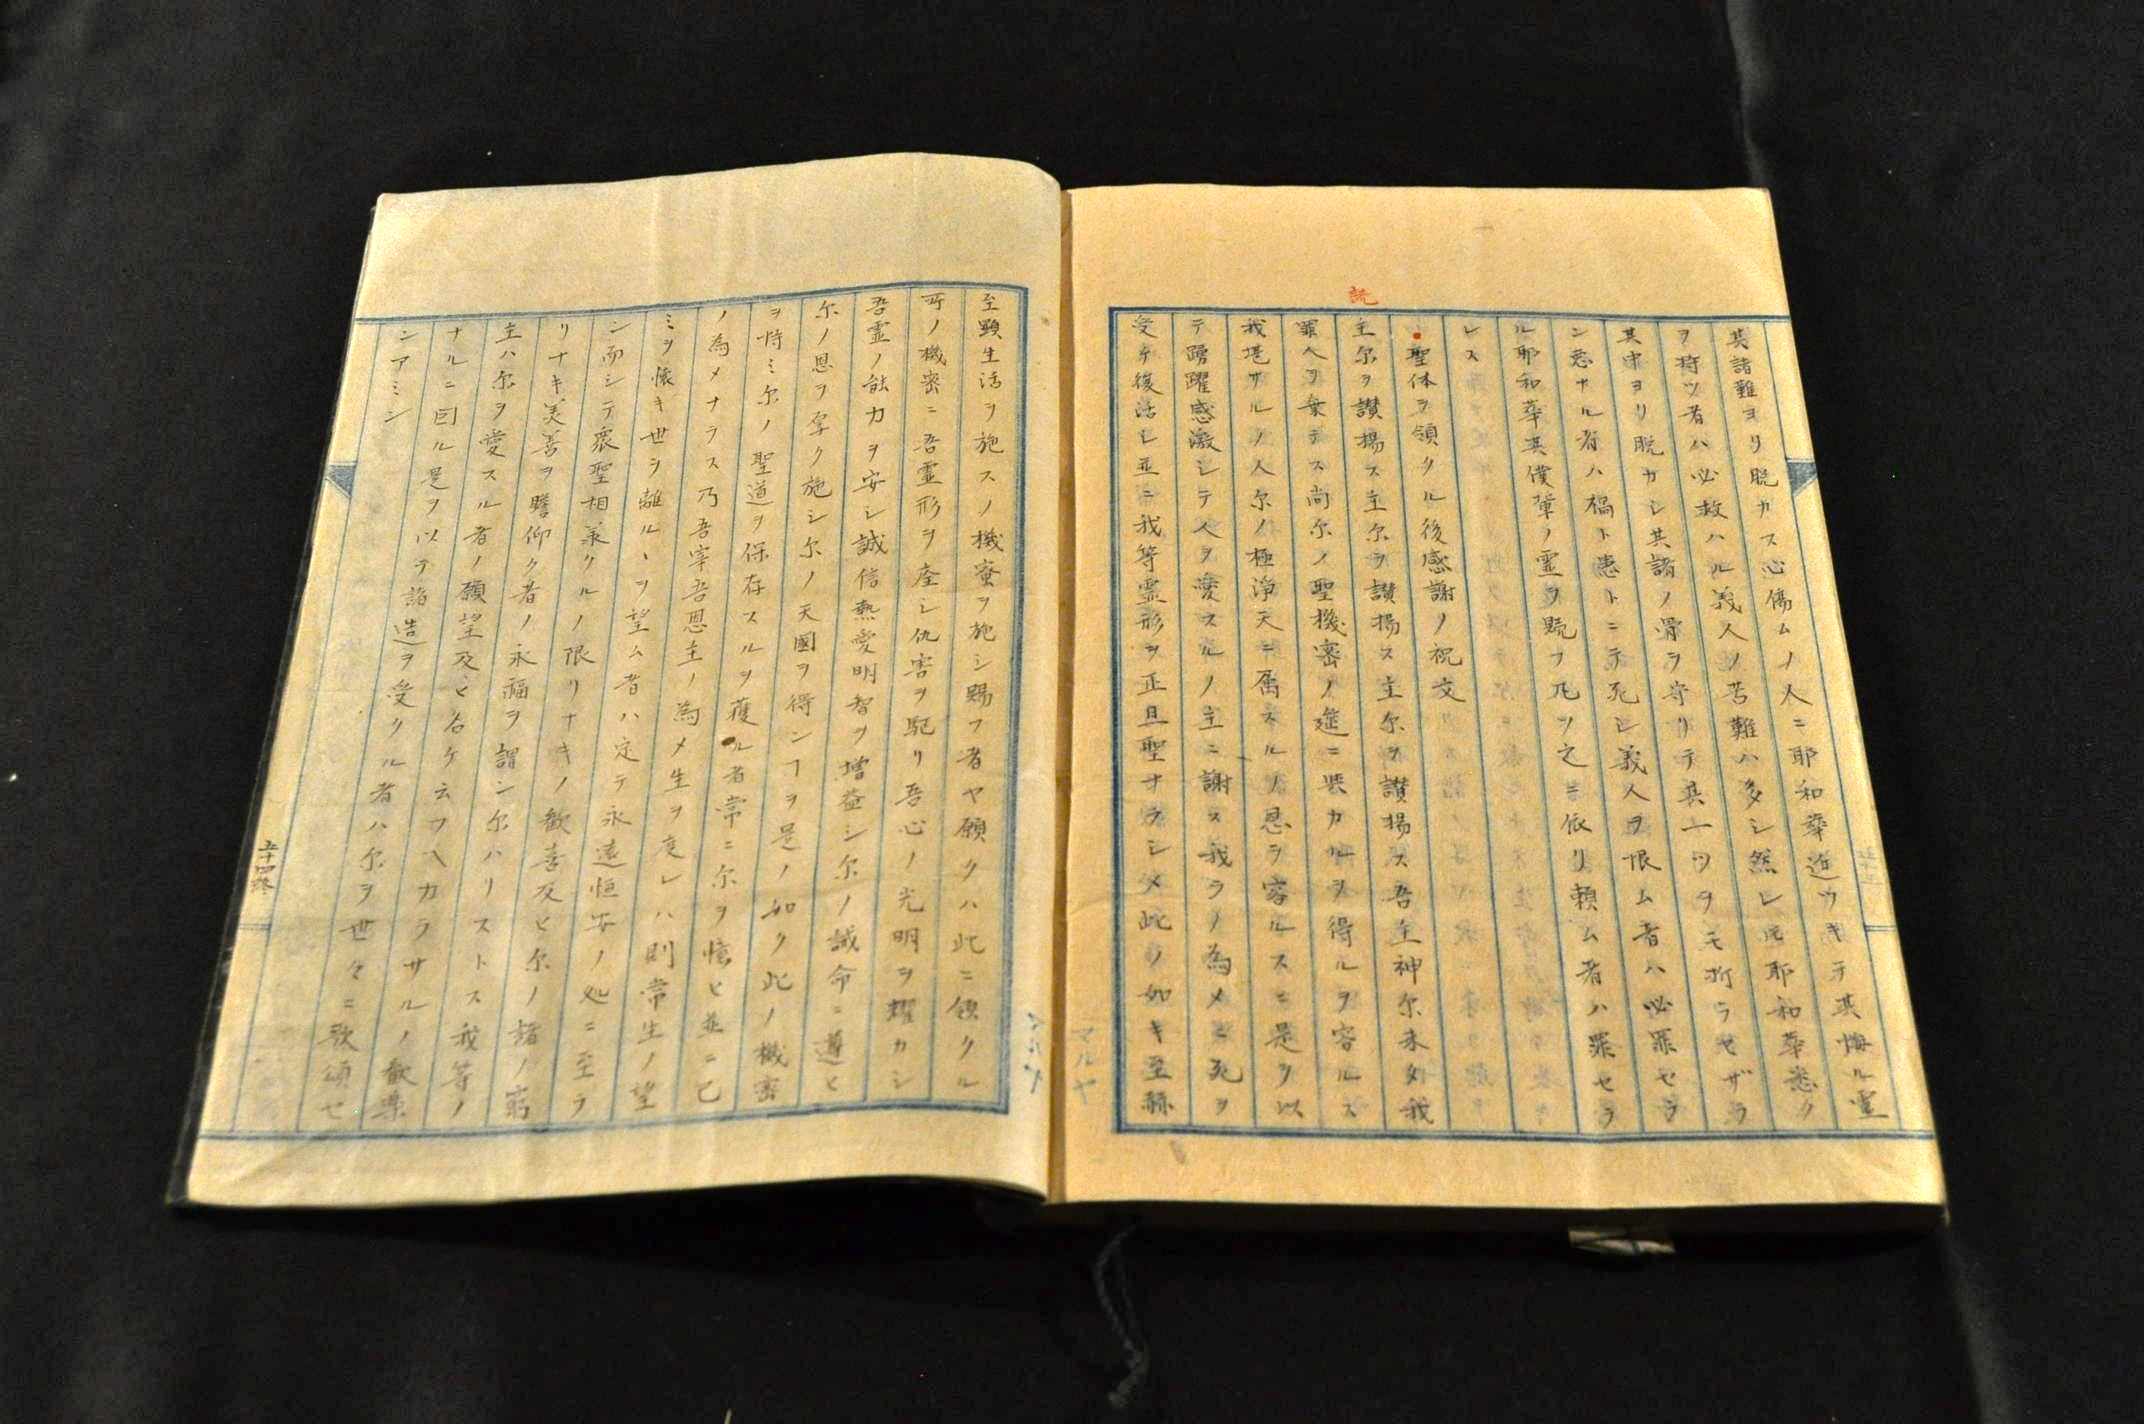 其諸難ヨリ脱カス心傷ムノ人ニ耶和華近ツキテ其悔ル霊
ヲ持ツ者ハ必救ハル義人ノ苦難ハ多シ然レ𪜈耶和華悉ク
其中ヨリ脱カシ其諸ノ骨ヲ守リテ其一ツタモ折ラセザラ
ン悪ナル者ハ禍ト患トニテ死シ義人ヲ恨ム者ハ必罪セラ
ル耶和華其僕輩ノ霊ヲ贖フ凡ソ之ニ依リ頼ム者ハ罪セラ
レス
読
聖体ヲ領クル後感謝ノ祝文
主尓ヲ讃揚ス主尓ヲ讃揚ス主尓ヲ讃揚ス吾主神尓未タ我
罪人ヲ棄テス尚尓ノ聖機密ノ筵ニ與カルヲ得ルヲ容ルス
我堪サルノ人尓ノ極淨天ニ属スルノ恩ヲ容ルスニ是ヲ以
テ踴躍感激シテ人ヲ愛スルノ主ニ謝ス我ラノ為メニ死ヲ
受ケ復活シ並ニ我等霊形ヲ正且聖ナラシメ此ノ如キ至赫
マルヤ
至顕生活ヲ施スノ機蜜ヲ施シ賜フ者ヤ願クハ此ニ領クル
所ノ機密ニ吾霊形ヲ痊シ仇害ヲ駈リ吾心ノ光明ヲ耀カシ
吾霊ノ能力ヲ安シ誠信熱愛明智ヲ増益シ尓ノ誡命ニ遵ヒ
尓ノ恩ヲ厚ク施シ尓ノ天國ヲ得ンヿヲ是ノ如ク此ノ機密
ヲ恃ミ尓ノ聖道ヲ保存スルヲ獲ル者常ニ尓ヲ憶ヒ並ニ己
ノ為メナラス乃吾宰吾恩主ノ為メ生ヲ度レハ則常生ノ望
ミヲ懐キ世ヲ離ルヽヲ望ム者ハ定テ永遠恒安ノ処ニ至ラ
ン而シテ衆聖相承クルノ限リナキノ歓喜及ヒ尓ノ諸ノ窮
リナキ美善ヲ瞻仰ク者ノ永福ヲ謂ン尓ハリストス我等ノ
主ハ尓ヲ愛スル者ノ願望及ヒ名ケ云フヘカラサルノ歓楽
ナルニ因ル是ヲ以テ諸造ヲ受クル者ハ尓ヲ世々ニ歌頌セ
ンアミン
五十四終